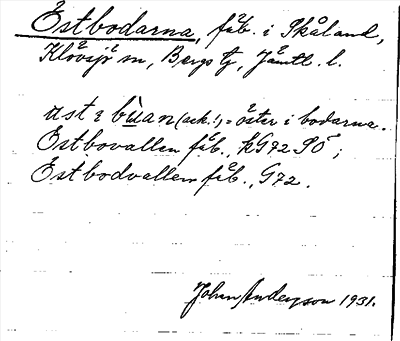 Östbodarna, fäb. i Skåland,
Klövsjö sn, Bergs tg, Jämtl. l.
äst i bùan (ack.!) = öster i bodarna.
Östbovallen fäb., KG72 SÖ;
Östbodvallen fäb., G72.
Johan Anderson 1931.